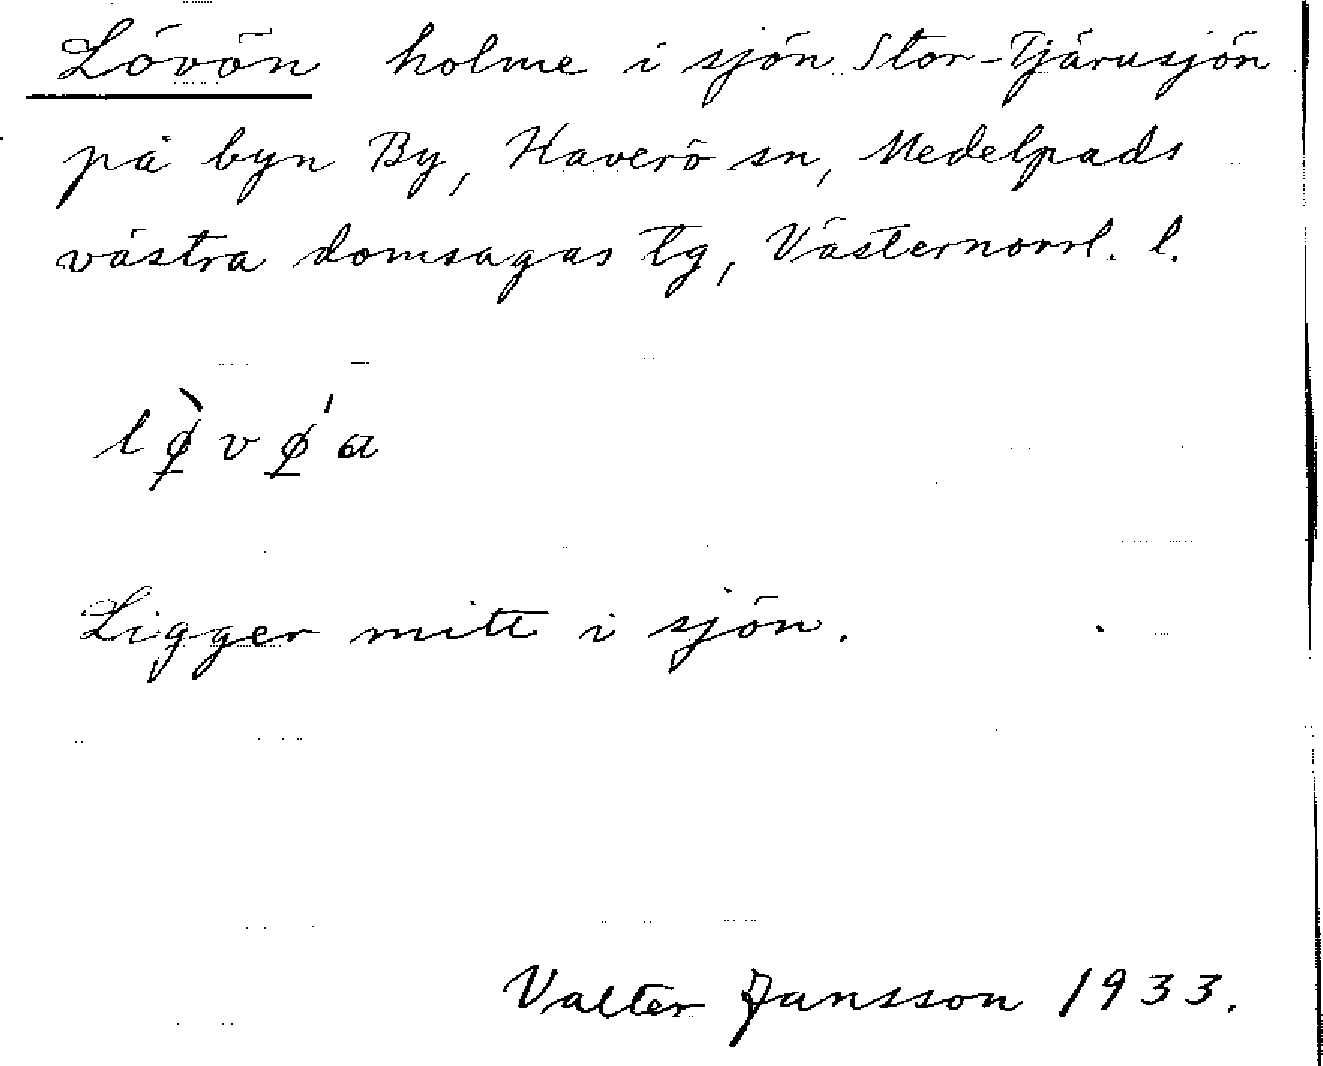 Lövön holme i sjön Stor-Tjärnsjön
på byn By, Haverö sn, Medelpads
västra domsagas tg, Västernorrl. l.
lø̀vø̀'a
Ligger mitt i sjön.
Valter Jansson 1933.